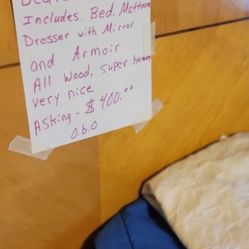 Includes. Bed. Mattress
Dresser with Mirror
and Armoir
All wood, super heavy
very nice
Asking - $400.00
O.b.O